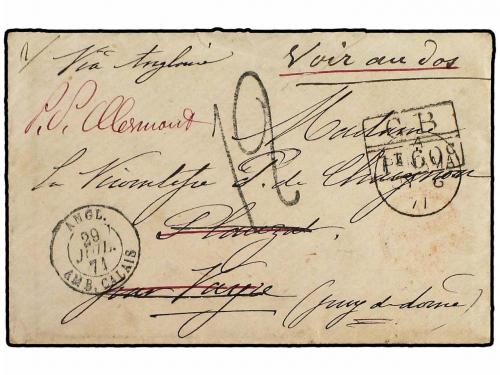 Via Angleterre
Voir au dos
P.P. Clermont
12
G B
1F 60C
Madame
A
JY 6
71
La Vicomtesse P. de
ANGL.
29
JUIL.
71
AMB. CALAIS
Plauzat
par Vayre (puy de dome)